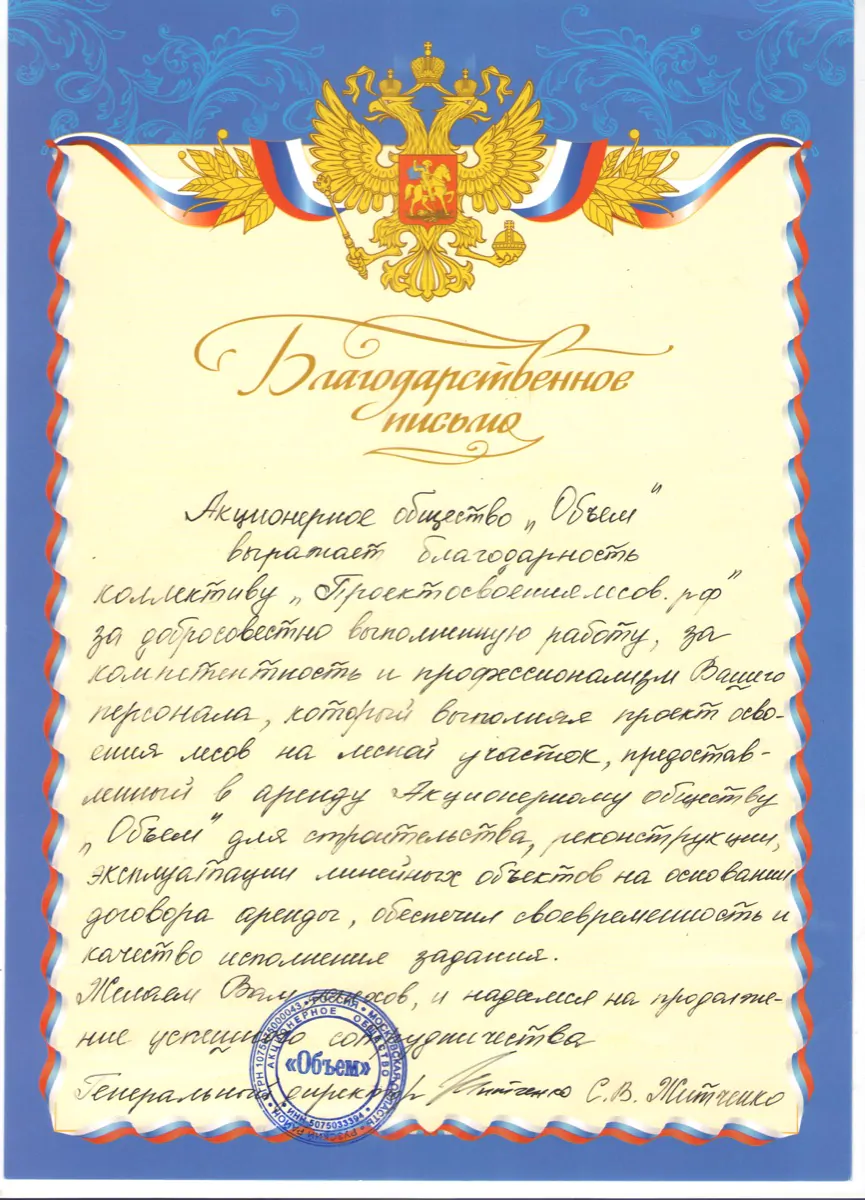 Благодарственное
письмо
Акционерное общество „Объем"
выражает благодарность
коллективу „Проектосвоениялесов.рф"
за добросовестно выполненную работу, за
компетентность и профессионализм Вашего
персонала, который выполняя проект осво-
ения лесов на лесной участок, предостав-
ленный в аренду Акционерному обществу
„Объем" для строительства, реконструкции,
эксплуатации линейных объектов на основании
договора аренды, обеспечил своевременность и
качество исполнения задания.
Желаем Вам успехов, и надеемся на продолже-
ние успешного сотрудничества
Генеральный директор Житченко С.В. Житченко
РОССИЯ • МОСКОВСКАЯ ОБЛАСТЬ • РУЗСКИЙ РАЙОН
АКЦИОНЕРНОЕ ОБЩЕСТВО
«Объем»
ИНН 5075033394